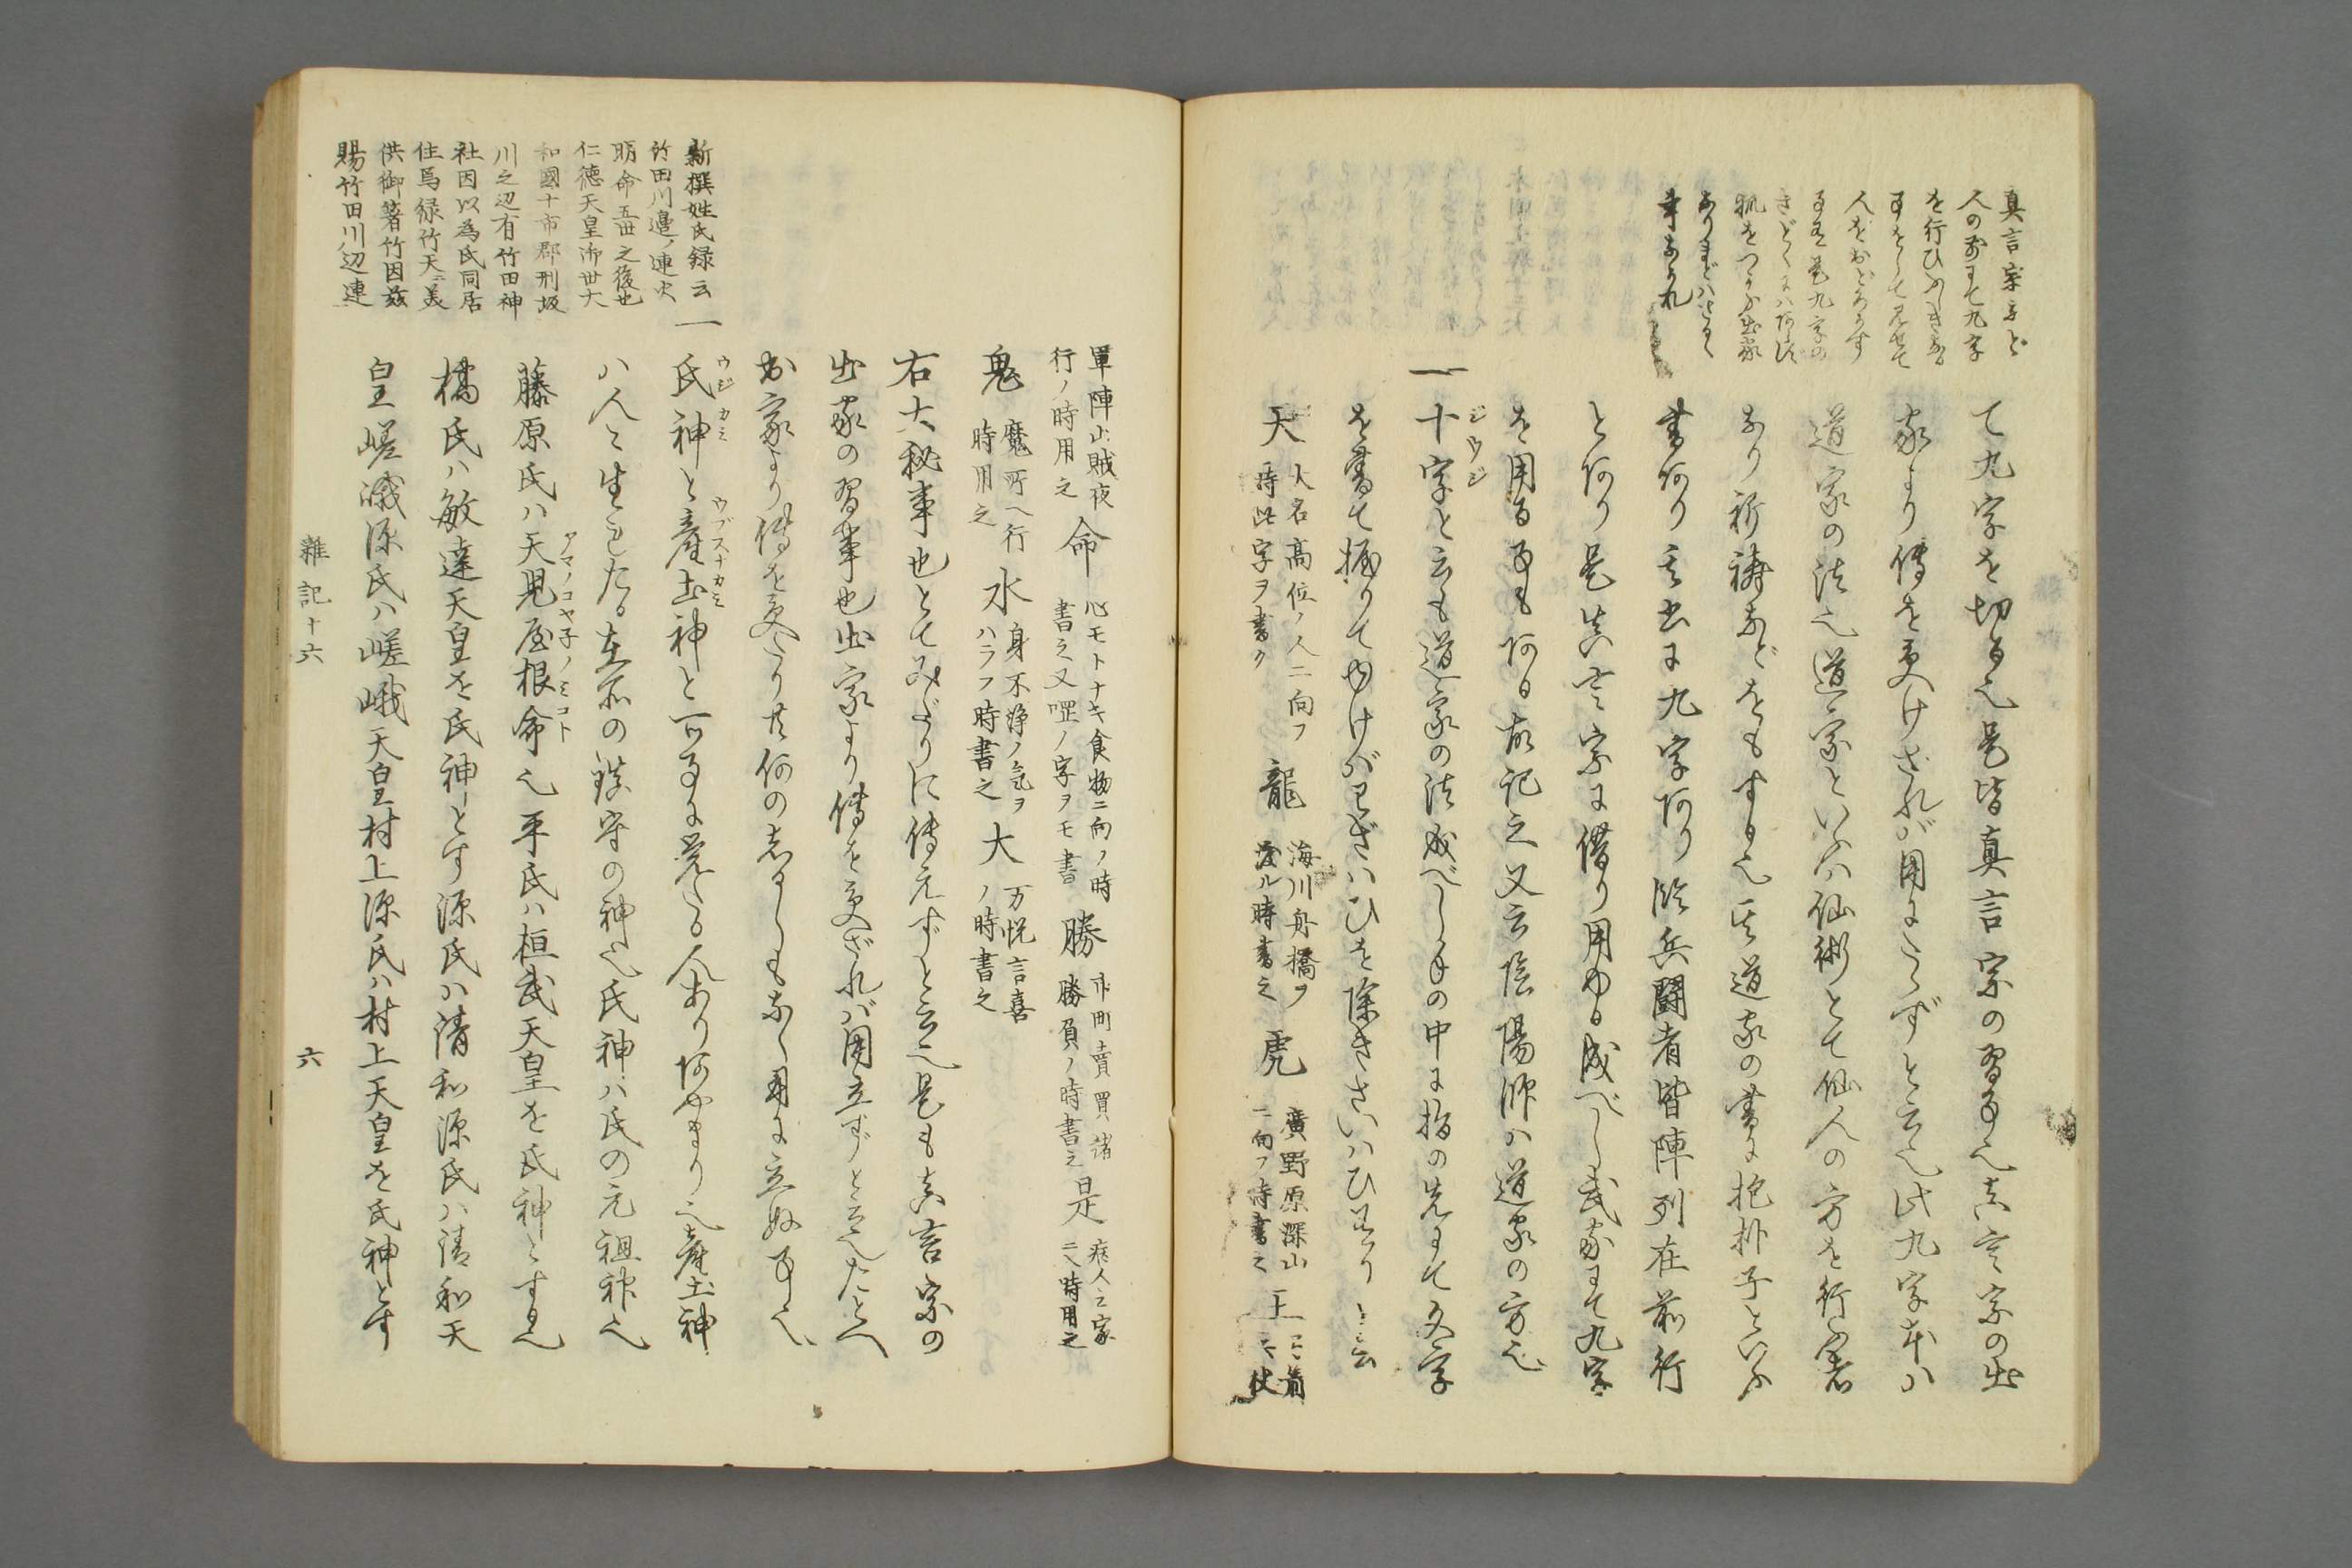 真言宗など
人の前にて九字
を行ひふしぎなる
事をして見せて
人をおどろかす
事有是九字の
きどくにハ阿らず
狐をつかふ出家
ありまどハさるゝ
事なかれ
て九字を切る也是皆真言宗の習事也真言宗の出
家より傳を受けざれバ用にたゝずと云也此九字本ハ
道家の法也道家といふハ仙術とて仙人の方を行ふ者
なり祈祷などをもする也其道家の書に抱朴子といふ
書阿り其書に九字阿り臨兵闘者皆陣列在前行
と阿り是真言宗に借り用ゆる成べし武家にて九字
を用る事も阿る故記之又云陰陽師ハ道家の方也
一
十字と云も道家の法成べし手の中に指の先にて文字
ジウジ
を書て握りてゆけバわざハひを除きさいハひ有りと云
天 大名高位ノ人ニ向フ
時此字ヲ書ク
龍 海川舟橋ヲ
渡ル時書之
虎 廣野原深山
ニ向フ時書之
王
軍陣山賊夜
行ノ時用之
命 心モトナキ食物ニ向ノ時
書之又咒ノ字ヲモ書
勝 市町賣買諸
勝負ノ時書之
是 病人之家
ニ入時用之
鬼 魔所ヘ行
時用之
水 身不浄ノ氣ヲ
ハラフ時書之
大 万悦言喜
ノ時書之
右大秘事也とてみだりに傳えずと云也是も真言宗の
出家の習事也出家より傳を受ざれバ用立ずと云也たとへ
出家より傳を受たり共何のしるしもなく用に立ぬ事也
一
氏神と産土神と一つ事に覚たる人あり阿やまり也産土神
ウジカミ
ウブスナカミ
ハ人々生れたる在所の鎮守の神也氏神ハ氏の元祖神也
藤原氏ハ天児屋根命也平氏ハ桓武天皇を氏神とする也
アマノコヤ子ノミコト
橘氏ハ敏達天皇を氏神とす源氏ハ清和源氏ハ清和天
皇嵯峨源氏ハ嵯峨天皇村上源氏ハ村上天皇を氏神とす
新撰姓氏録云
竹田川邉ノ連火
明命五世之後也
仁徳天皇御世大
和國十市郡刑坂
川之辺有竹田神
社因以為氏同居
住焉緑竹大美
供御箸竹因茲
賜竹田川辺連
雜記十六
六